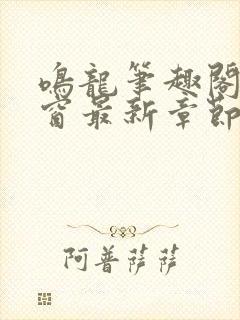 鳴龍筆趣閣
窗最新章節
阿普薩薩